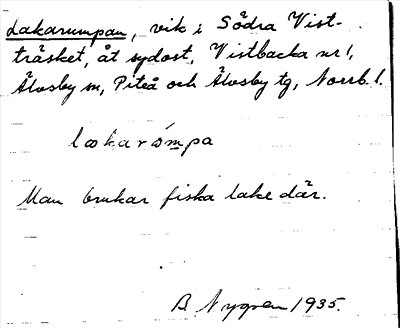 Lakarumpan, vik i Södra Vist-
träsket, åt sydost, Vistbacka nr 1,
Älvsby sn, Piteå och Älvsby tg, Norrb. l.
lakarómpa
Man brukar fiska lake där.
B. Nygren 1935.